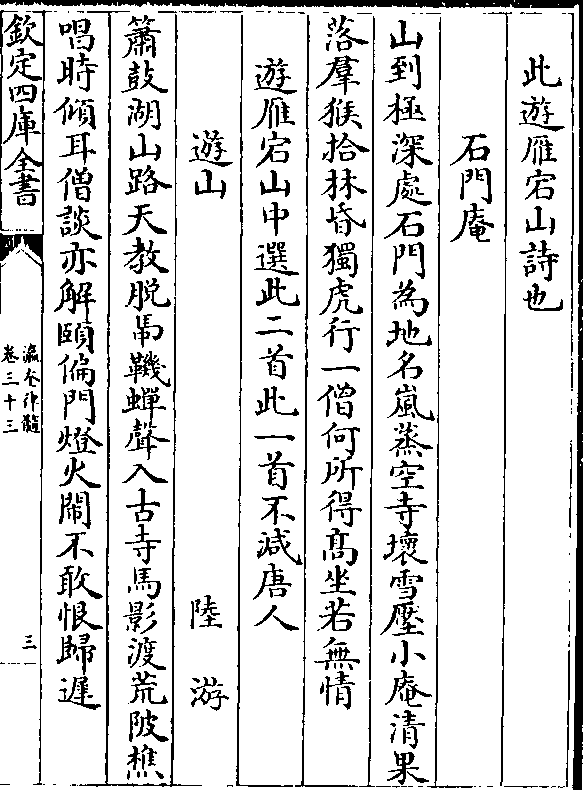 此遊雁宕山詩也
石門庵
山到極深處石門為地名嵐蒸空寺壞雪壓小庵清果
落羣猴拾林昏獨虎行一僧何所得髙坐若無情
遊雁宕山中選此二首此一首不減唐人
遊山 陸游
簫鼓湖山路天教脱馽鞿蟬聲入古寺馬影渡荒陂樵
唱時傾耳僧談亦解頤偏門燈火鬧不敢恨歸遲
欽定四庫全書
瀛奎律髓
卷三十三
三